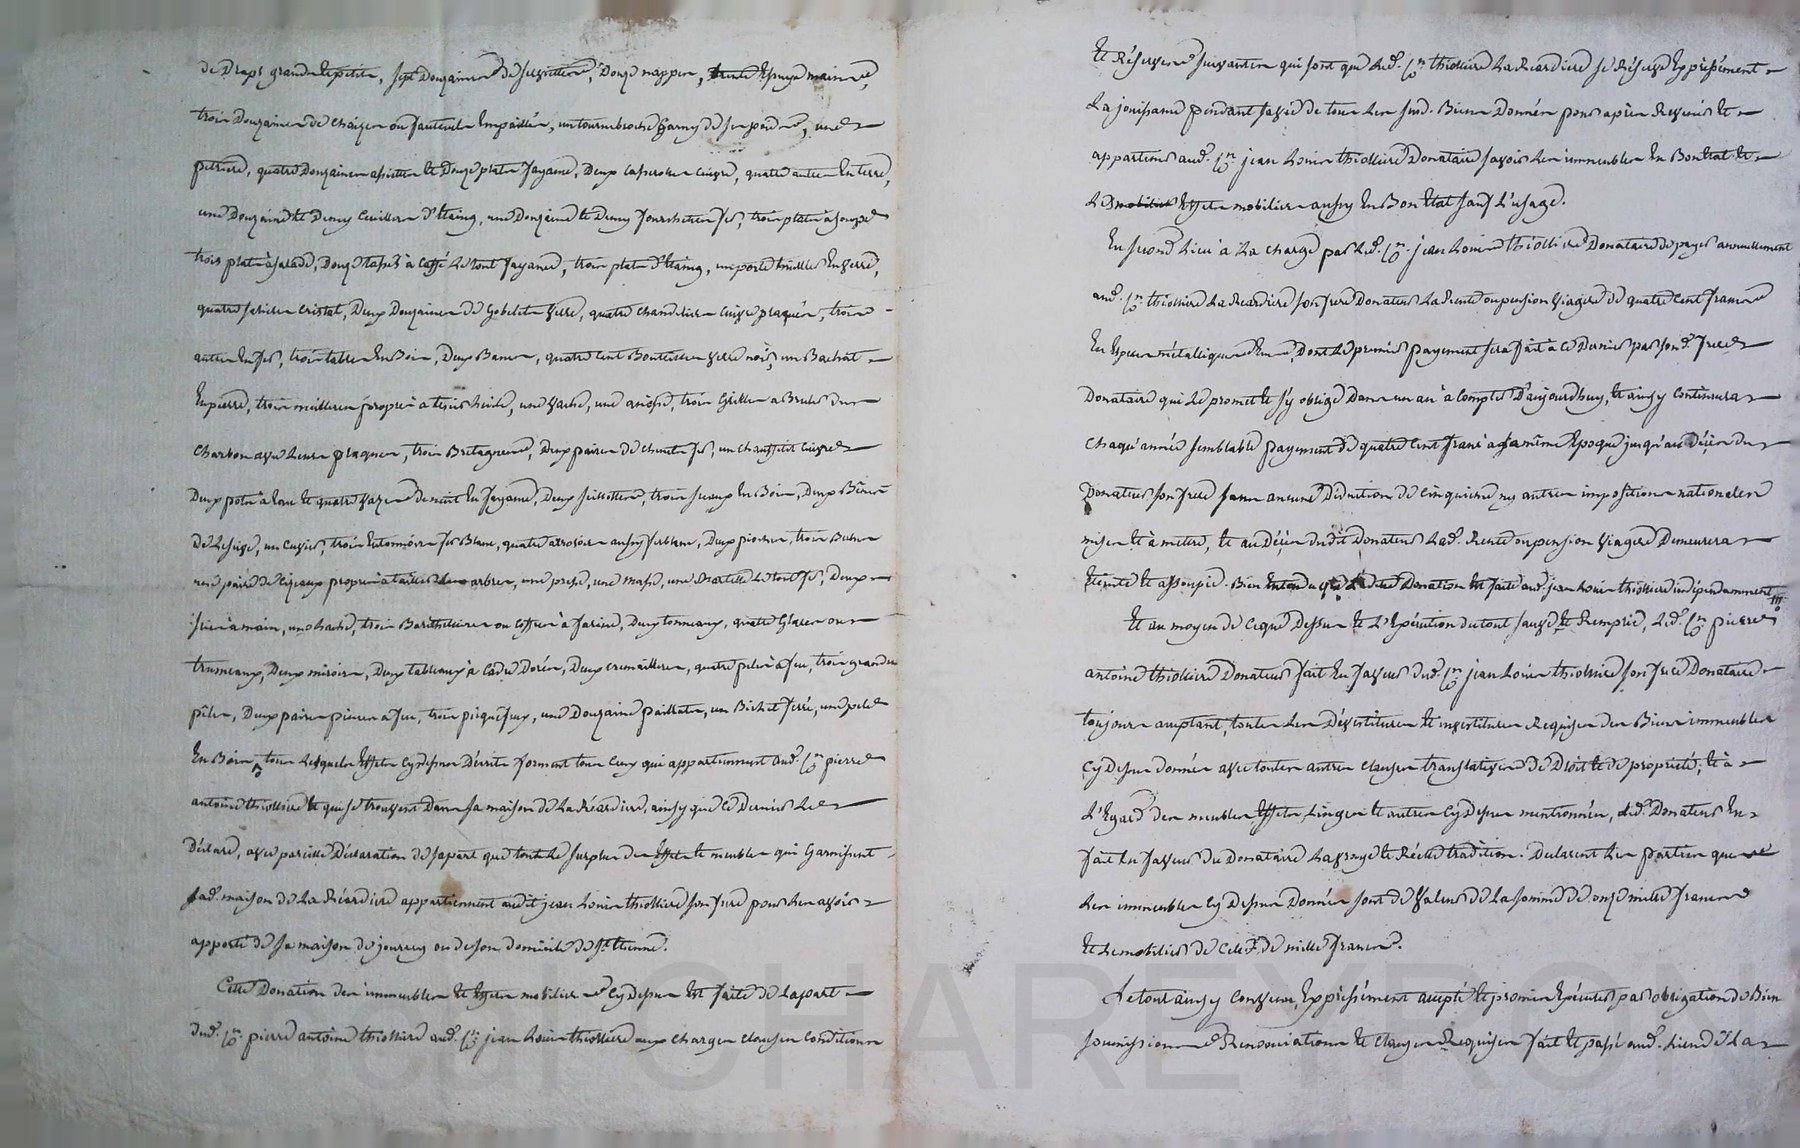 de Draps grands et petits, sept Douzaines de serviettes, Douze nappes, trente Essuye mains,
trois Douzaines de chaizes ou fauteuils Empaillés, un tournebroche Garny de ses cordes, une
petriere, quatre Douzaines assiettes et Douze plats fayance, Deux casseroles cuivre, quatre autres En terre,
une Douzaine et Demy Cuilliers D'Etaing, une Douzaine et Demy fourchettes fer, trois plats à soupe
trois plats à salade, Douze tasses à Caffé Le tout fayance, trois plats D'Etaing, un porte huillier En verre,
quatre salieres Cristal, Deux Douzaines de Gobelets Verre, quatre chandeliers Cuivre plaqués, trois
autres En fer, trois tables En Bois, Deux Bancs, quatre Cent Bouteilles verre noir, un Bachat
En pierre, trois meilleres propres à tenir huile, une Vache, une anesse, trois Grilles a Bruler du
Charbon avec Leurs plaques, trois Bretagnes, Deux paires de chenets fer, un chauffelit Cuivre
Deux pots à Eau et quatre Vazes de nuit En fayance, Deux seillottes, trois seaux En Bois, Deux Bennes
de Lessive, un Cuvier, trois Entonnoirs fer Blanc, quatre arrosoirs aussy fer blanc, Deux pioches, trois Bches
une paire de Cizeaux propres à tailler Les arbres, une presse, une Masse, une Martelle Le tout fer, Deux
Scies à main, une hache, trois ou Coffres à farine, Deux tonneaux, quatre Glaces ou
trumeaux, Deux miroirs, Deux tableaux à Cadre Dorés, Deux cremailleres, quatre pelles à feu, trois grandes
pêles, Deux paires pinces a feu, trois piquefeux, une Douzaine paillats, un Bichet ferré, une pele
En Bois, tous Lesquels Effets Cydessus Décrits forment tous Ceux qui appartiennent aud. Cen pierre
antoine thiolliere et qui se trouvent Dans sa maison de La Réardiere, ainsy que ce Dernier Le
Déclare, avec pareille Déclaration de sa part que tout Le surplus des Effets et meubles qui Garnissent
Lad. maison de La Réardiere appartiennent audit jean Louis thiolliere son frere pour Les avoir
apporté de sa maison de jourcey ou de son domicile de St. Etienne.
Cette Donation des immeubles et Effets mobiliers Cydessus Est faite de La part
dud. Cen pierre antoine thiolliere aud. Cen jean Louis thiolliere aux Charges Clauses Conditions
Et Réserves suivantes qui sont que Led. Cen thiolliere La Réardiere se Réserve Expressément
La jouissance pendant sa vie de tous Les susd. Biens Donnés pour après Revenir et
appartenir aud. Cen jean Louis thiolliere Donataire savoir Les immeubles En Bon Etat et
Les Effets mobiliers aussy En Bon Etat sauf L'usage.
En second Lieu à La Charge par Led. Cen jean Louis thiolliere Donataire de payer annuellement
aud. Cen thiolliere La Réardiere son frere Donateur La Rente ou pension Viagere de quatre Cent francs
En Especes métalliques, Dont Le premier payement sera fait à ce Dernier par sond. frere
Donataire qui Le promet et s'y oblige Dans un an à Compter D'aujourdhuy, et ainsy Continuera
Chaque année semblable payement de quatre Cent francs à La même Epoque jusqu'au Décès du
Donateur son frere sans aucune Déduction de Cinquieme ny autres impositions nationales
mises et à mettre, et au Décès dudit Donateur Lad. Rente ou pension Viagere Demeurera
Eteinte et assoupie. Bien Entendu que Ladite Donation Est faite aud. jean Louis thiolliere indépendamment
Et au moyen de Ce que Dessus et L'Exécution du tout sauve et Remplie, Led. Cen pierre
antoine thiolliere Donateur fait En faveur dud. Cen jean Louis thiolliere son frere Donataire
toujours acceptant, toutes Les Dévestitures et investitures Requises des Biens immeubles
Cy Dessus donnés avec toutes autres clauses translatives de Droit et de propriété, et à
L'Egard des meubles Effets Linges et autres Cy Dessus mentionnés, Led. Donateur En
fait En faveur du Donataire La vraye et Réelle tradition. Declarent Les parties que
Les immeubles Cy Dessus Donnés sont de Valeur de La somme de onze mille francs
Et Le mobilier de Celle de mille francs.
Le tout ainsy Convenu, Expressément accepté et promis Exécuter par obligation de Biens
soumissions Renonciations et Clauses Requises fait et passé aud. Lieu de La